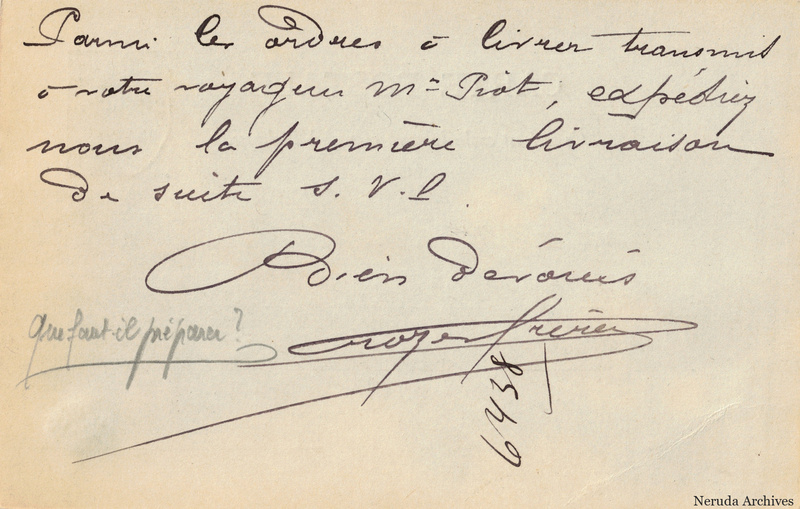 Parmi les ordres à livrer transmis
à votre voyageur Mr Piot, expédiez
nous la première livraison
de suite S. V. P.
Bien dévoués
Que faut-il préparer?
6438
Neruda Archives